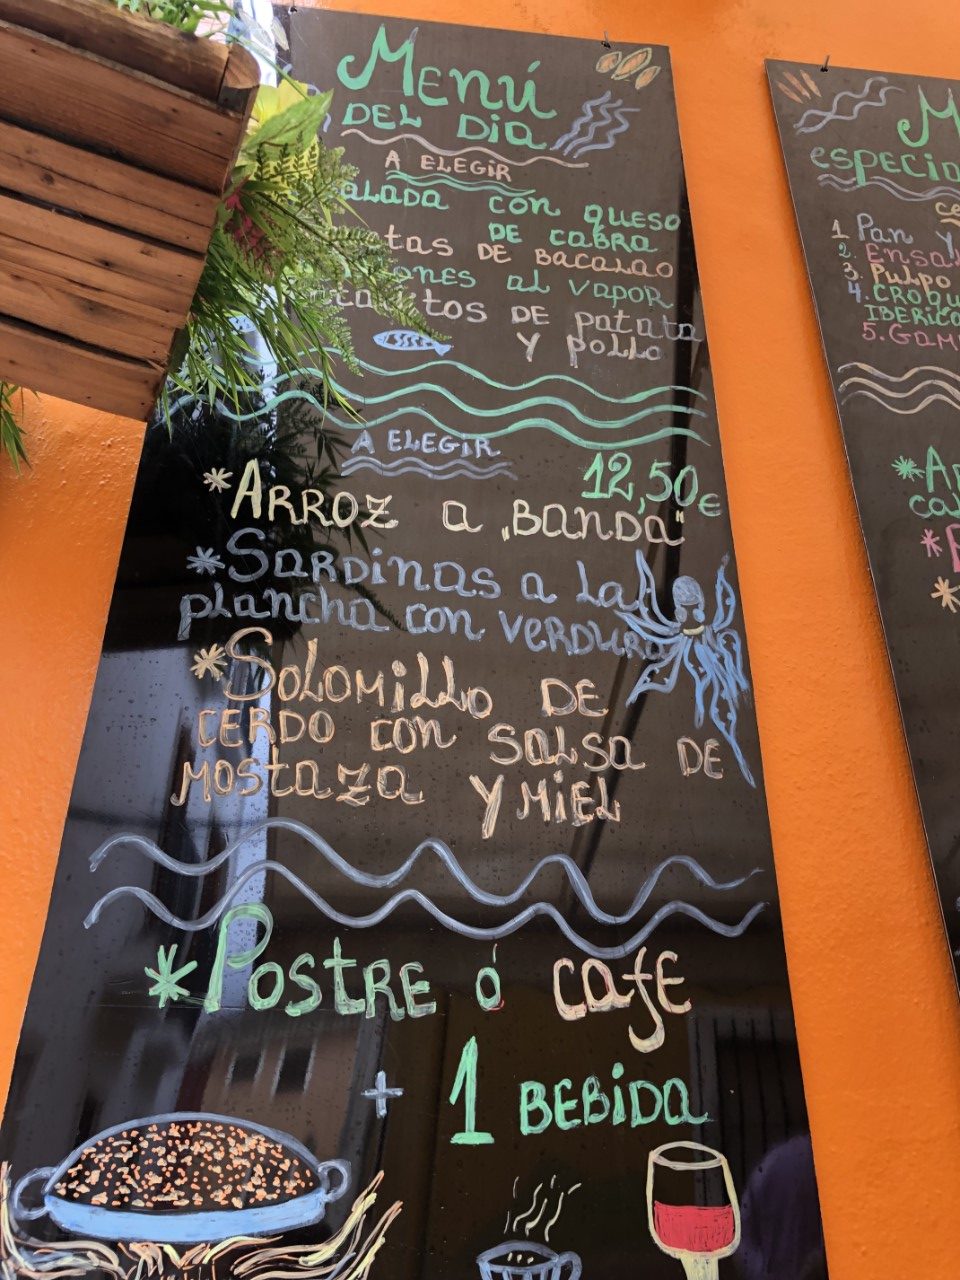 Menú
DEL Dia
A ELEGIR
con queso
DE cabra
DE bacalao
al vapor
DE patata
Y pollo
A ELEGIR
12,50€
*ARROZ a „BANDA"
*Sardinas a la
plancha con VERDURA
*Solomillo DE
CERDO con salsa DE
mostaza Y MiEL
*PostRE ó cafE
+ 1 BEBiDa
especia
1. Pan y
2. Ensal
3. Pulpo
4. CROqu
IBERico
5. Gam